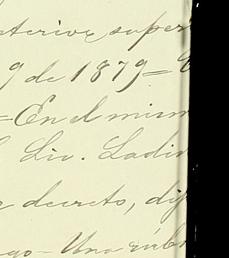 anterior, super
9 de 1879 =
= En el mism
Lic. Ladis
decreto, dij
Una rúbr